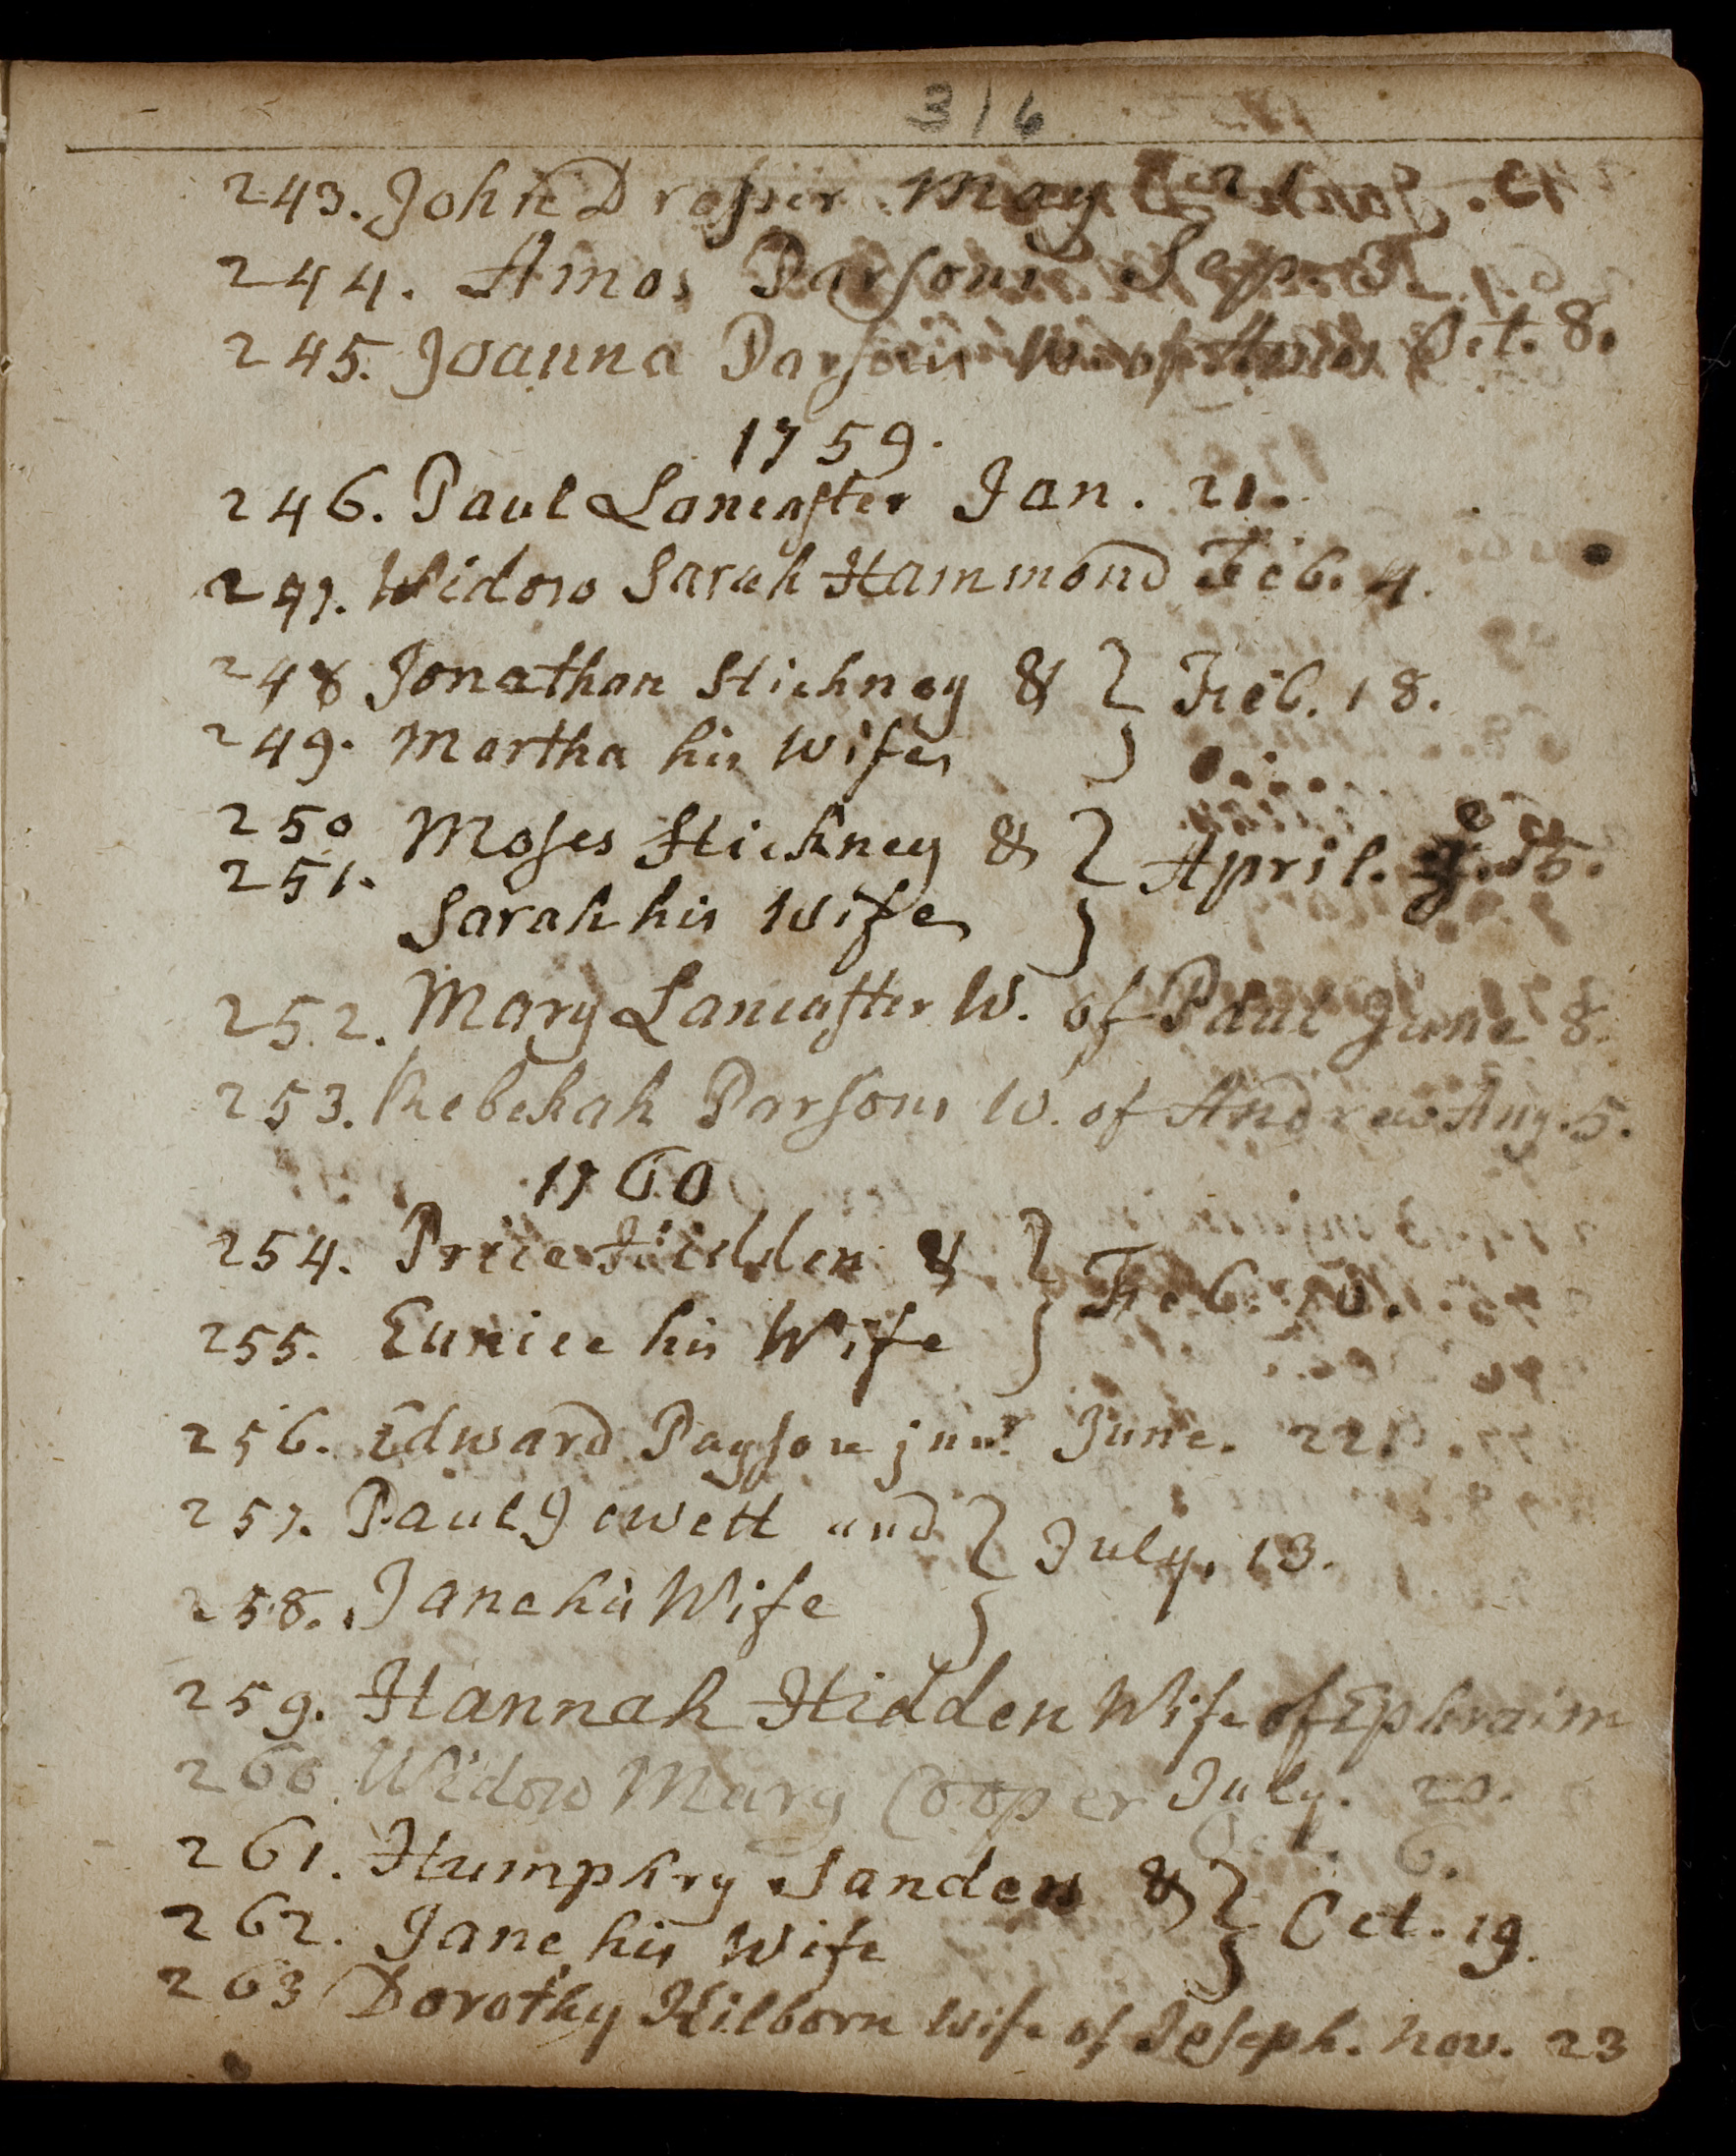 316
243. John Draper May 21
244. Amos Parsons Sep. 3.
245. Joanna Parsons W. of Amos Oct. 8.
1759.
246. Paul Lancaster Jan. 21.
247. Widow Sarah Hammond Feb. 4.
248 Jonathan Stickney & } Feb. 18.
249. Martha his Wife
250 Moses Stickney & } April.
251.
Sarah his Wife
252. Mary Lancaster W. of Paul June 8.
253. Rebekah Parsons W. of Andrew Aug. 5.
1760
254. Price Hidden & } Feb. 10.
255. Eunice his Wife
256. Edward Payson junr. June. 22.
257. Paul Jewett and } July. 13.
258. Jane his Wife
259. Hannah Hidden Wife of Ephraim
July. 20.
260. Widow Mary Cooper
Oct. 6.
261. Humphry Sanders & } Oct. 19.
262. Jane his Wife
263 Dorothy Kilborn Wife of Joseph. Nov. 23